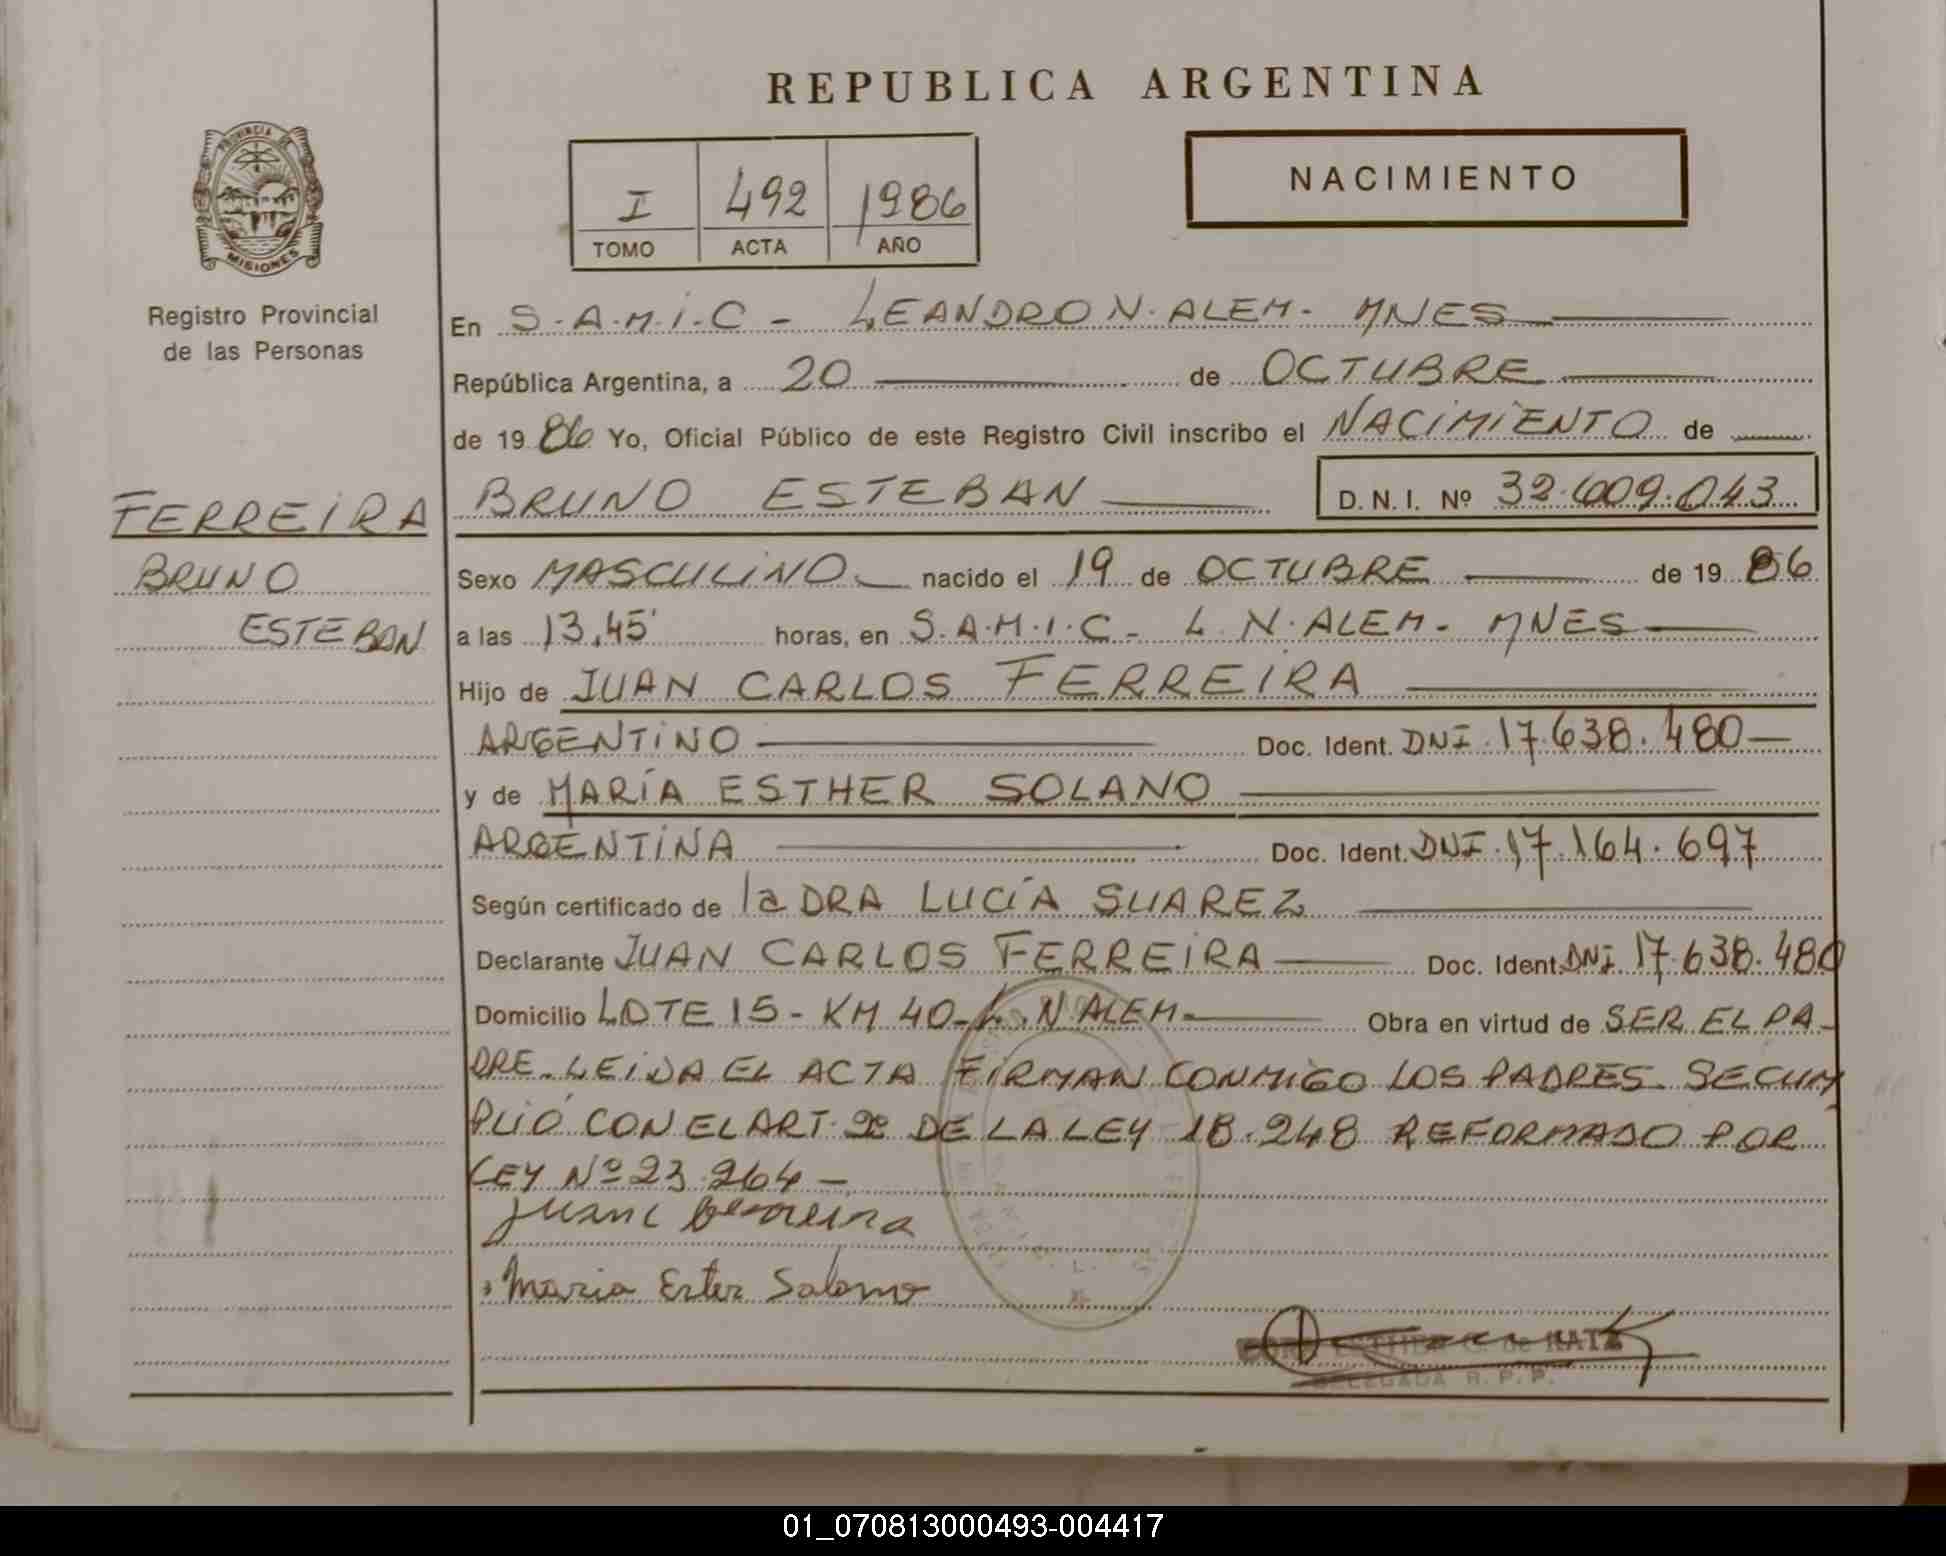 REPUBLICA ARGENTINA
PROVINCIA DE
MISIONES
Registro Provincial
de las Personas
I 492 1986
TOMO ACTA AÑO
NACIMIENTO
En S.A.M.I.C - LEANDRO N. ALEM - MNES
República Argentina, a 20 de OCTUBRE
de 1986 Yo, Oficial Público de este Registro Civil inscribo el NACIMIENTO de
FERREIRA
BRUNO
ESTEBAN
BRUNO ESTEBAN D.N.I. Nº 32.609.043
Sexo MASCULINO nacido el 19 de OCTUBRE de 1986
a las 13,45' horas, en S.A.M.I.C - L.N. ALEM - MNES
Hijo de JUAN CARLOS FERREIRA
ARGENTINO Doc. Ident. DNI.17.638.480
y de MARÍA ESTHER SOLANO
ARGENTINA Doc. Ident. DNI.17.164.697
Según certificado de la DRA LUCÍA SUAREZ
Declarante JUAN CARLOS FERREIRA Doc. Ident. DNI.17.638.480
Domicilio LOTE 15 - KM 40 - L.N ALEM Obra en virtud de SER EL PA-
DRE. LEIDA EL ACTA FIRMAN CONMIGO LOS PADRES. SE CUM
PLIÓ CON EL ART. 2º DE LA LEY 18.248 REFORMADO POR
LEY Nº 23.264 -
Juan C Ferreira
Maria Ester Solano
ESTHER G. de RATZ
DELEGADA R.P.P.
01_070813000493-004417